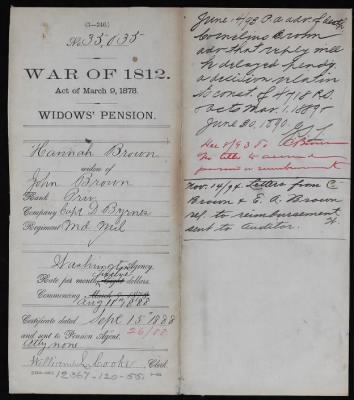 (3—246.)
No. 35,035
WAR OF 1812.
Act of March 9, 1878.
WIDOWS' PENSION.
Hannah Brown
widow of
John Brown
Rank Priv
Company Capt D Byrnes
Regiment Md. Mil
Washington Agency.
Rate per month, Eight dollars.
twelve
Commencing March 9, 1878
Aug 11th 1888
Certificate dated Sept 15th 1888
and sent to Pension Agent. 26/02
Atty none
William L. Cooke Clerk.
12367-120-551
June 14/93 P.a. adv. of death
Cornelius Brown
adv that reply will
be delayed pending
a decision relative
to const. of 4718 R.S.
Acts Mar. 1. 1889
June 30, 1890.
Dec 0/93
C Brown
No title to accrued
pension or reimbursement
Nov. 14/94. Letters from C
Brown & E. A. Brown
rel. to reimbursement
sent to Auditor.